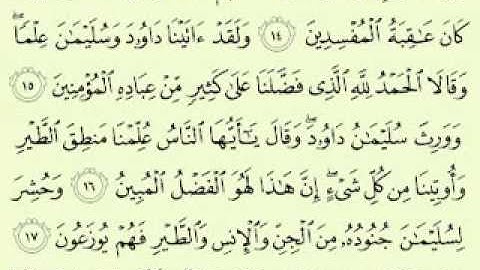 كَانَ عَٰقِبَةُ ٱلۡمُفۡسِدِينَ ١٤ وَلَقَدۡ ءَاتَيۡنَا دَاوُۥدَ وَسُلَيۡمَٰنَ عِلۡمٗاۖ
وَقَالَا ٱلۡحَمۡدُ لِلَّهِ ٱلَّذِي فَضَّلَنَا عَلَىٰ كَثِيرٖ مِّنۡ عِبَادِهِ ٱلۡمُؤۡمِنِينَ ١٥
وَوَرِثَ سُلَيۡمَٰنُ دَاوُۥدَۖ وَقَالَ يَٰٓأَيُّهَا ٱلنَّاسُ عُلِّمۡنَا مَنطِقَ ٱلطَّيۡرِ
وَأُوتِينَا مِن كُلِّ شَيۡءٍۖ إِنَّ هَٰذَا لَهُوَ ٱلۡفَضۡلُ ٱلۡمُبِينُ ١٦ وَحُشِرَ
لِسُلَيۡمَٰنَ جُنُودُهُۥ مِنَ ٱلۡجِنِّ وَٱلۡإِنسِ وَٱلطَّيۡرِ فَهُمۡ يُوزَعُونَ ١٧